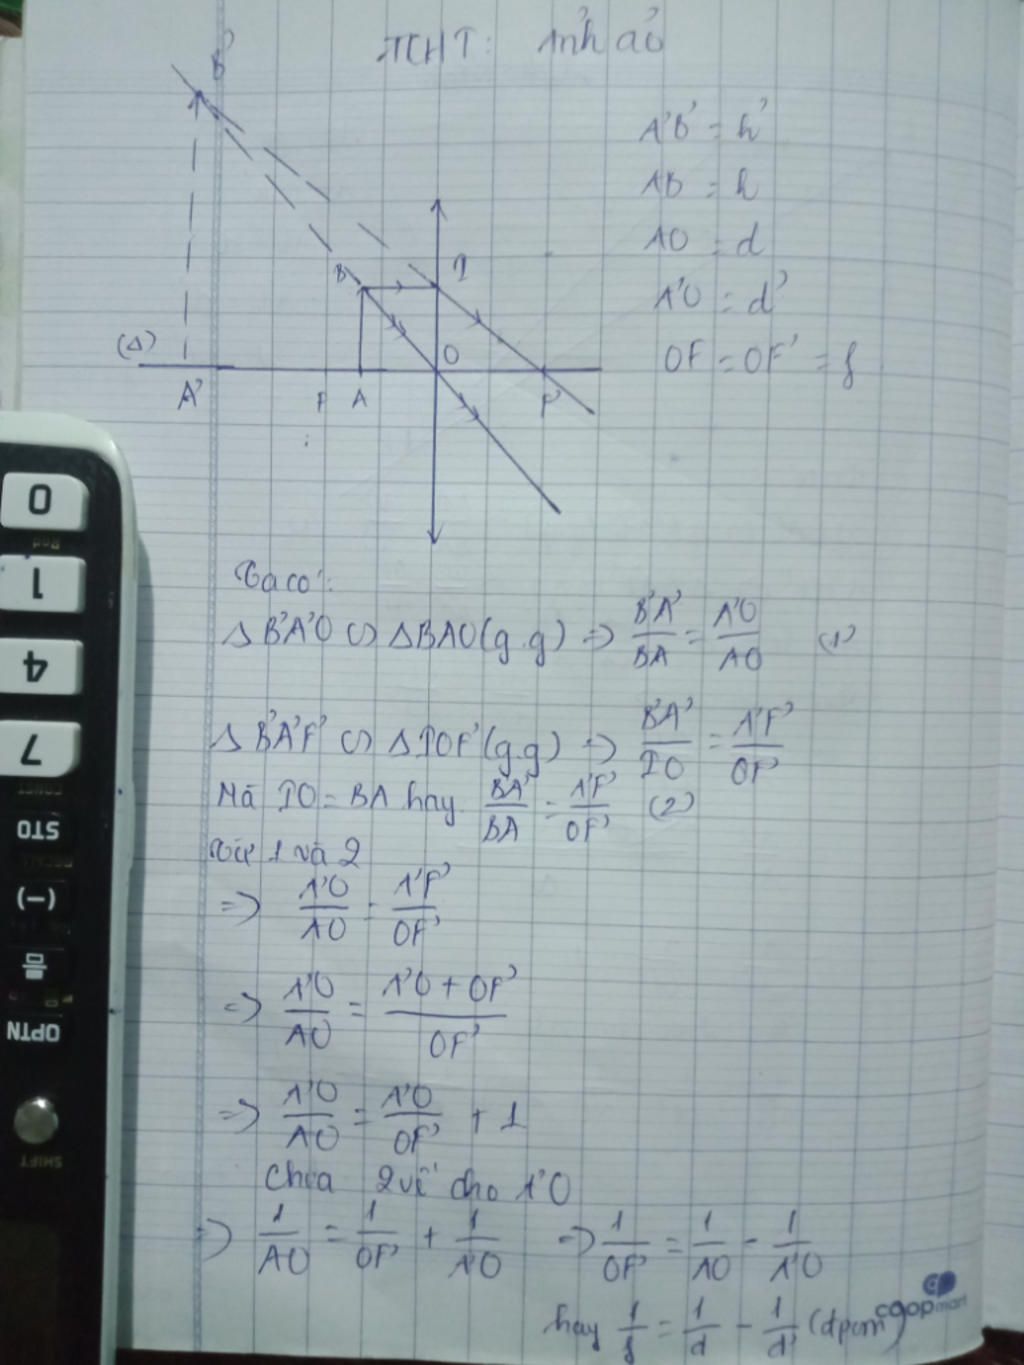 TCHT: Ảnh ảo
B'
A'B' = h'
AB = h
AO = d
A'O = d'
OF = OF' = f
B
I
(Δ)
O
A'
F
A
F'
Ta có:
Δ B'A'O ∽ Δ BAO (g.g) => B'A'/BA = A'O/AO (1)
Δ B'A'F' ∽ Δ IOF' (g.g) => B'A'/IO = A'F'/OF'
Mà IO = BA hay BA'/BA = A'F'/OF' (2)
Từ 1 và 2
=> A'O/AO = A'F'/OF'
=> A'O/AO = A'O + OF'/OF'
=> A'O/AO = A'O/OF' + 1
Chia 2 vế cho A'O
=> 1/AO = 1/OF' + 1/A'O => 1/OF' = 1/AO - 1/A'O
hay 1/f = 1/d - 1/d' (đpcm)
co.opmart
0
1
4
7
STO
(−)
OPTN
SHIFT